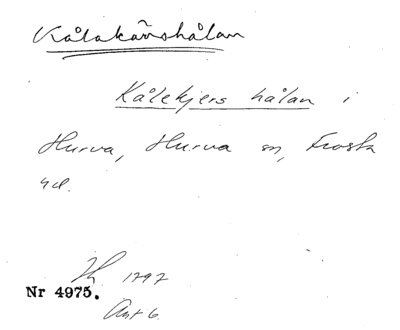 Kålakärshålan
Kålekjers hålan i
Hurva, Hurva sn, Frosta
hd.
1797
Nr 4975.
Akt 6.